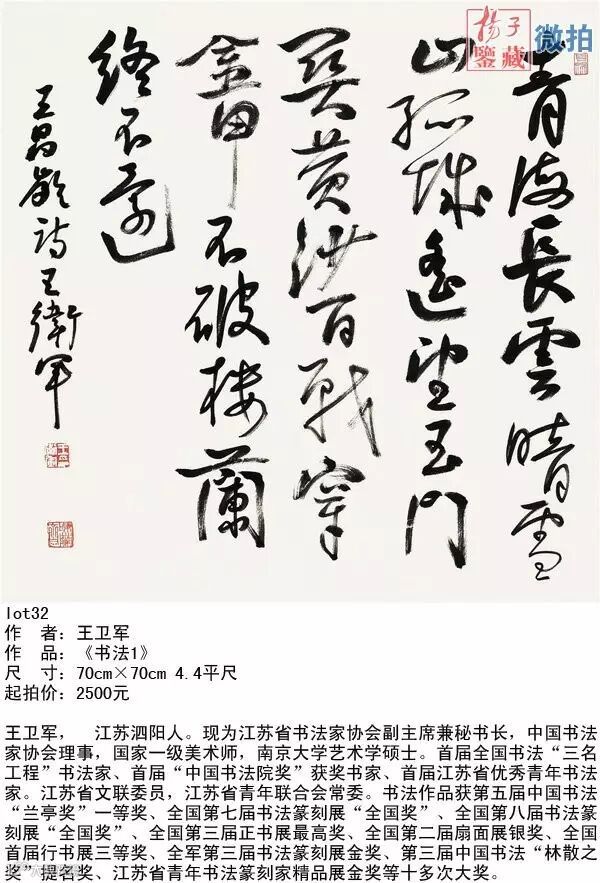 青海長雲暗雪
山孤城遥望玉門
関黄沙百戰穿
金甲不破樓蘭
終不還
王昌齡詩王衛軍
揚子
鑒藏
微拍
lot32
作　者：王卫军
作　品：《书法1》
尺　寸：70cm×70cm 4.4平尺
起拍价：2500元
王卫军，　江苏泗阳人。现为江苏省书法家协会副主席兼秘书长，中国书法
家协会理事，国家一级美术师，南京大学艺术学硕士。首届全国书法“三名
工程”书法家、首届“中国书法院奖”获奖书家、首届江苏省优秀青年书法
家。江苏省文联委员，江苏省青年联合会常委。书法作品获第五届中国书法
“兰亭奖”一等奖、全国第七届书法篆刻展“全国奖”、全国第八届书法篆
刻展“全国奖”、全国第三届正书展最高奖、全国第二届扇面展银奖、全国
首届行书展三等奖、全军第三届书法篆刻展金奖、第三届中国书法“林散之
奖”提名奖、江苏省青年书法篆刻家精品展金奖等十多次大奖。